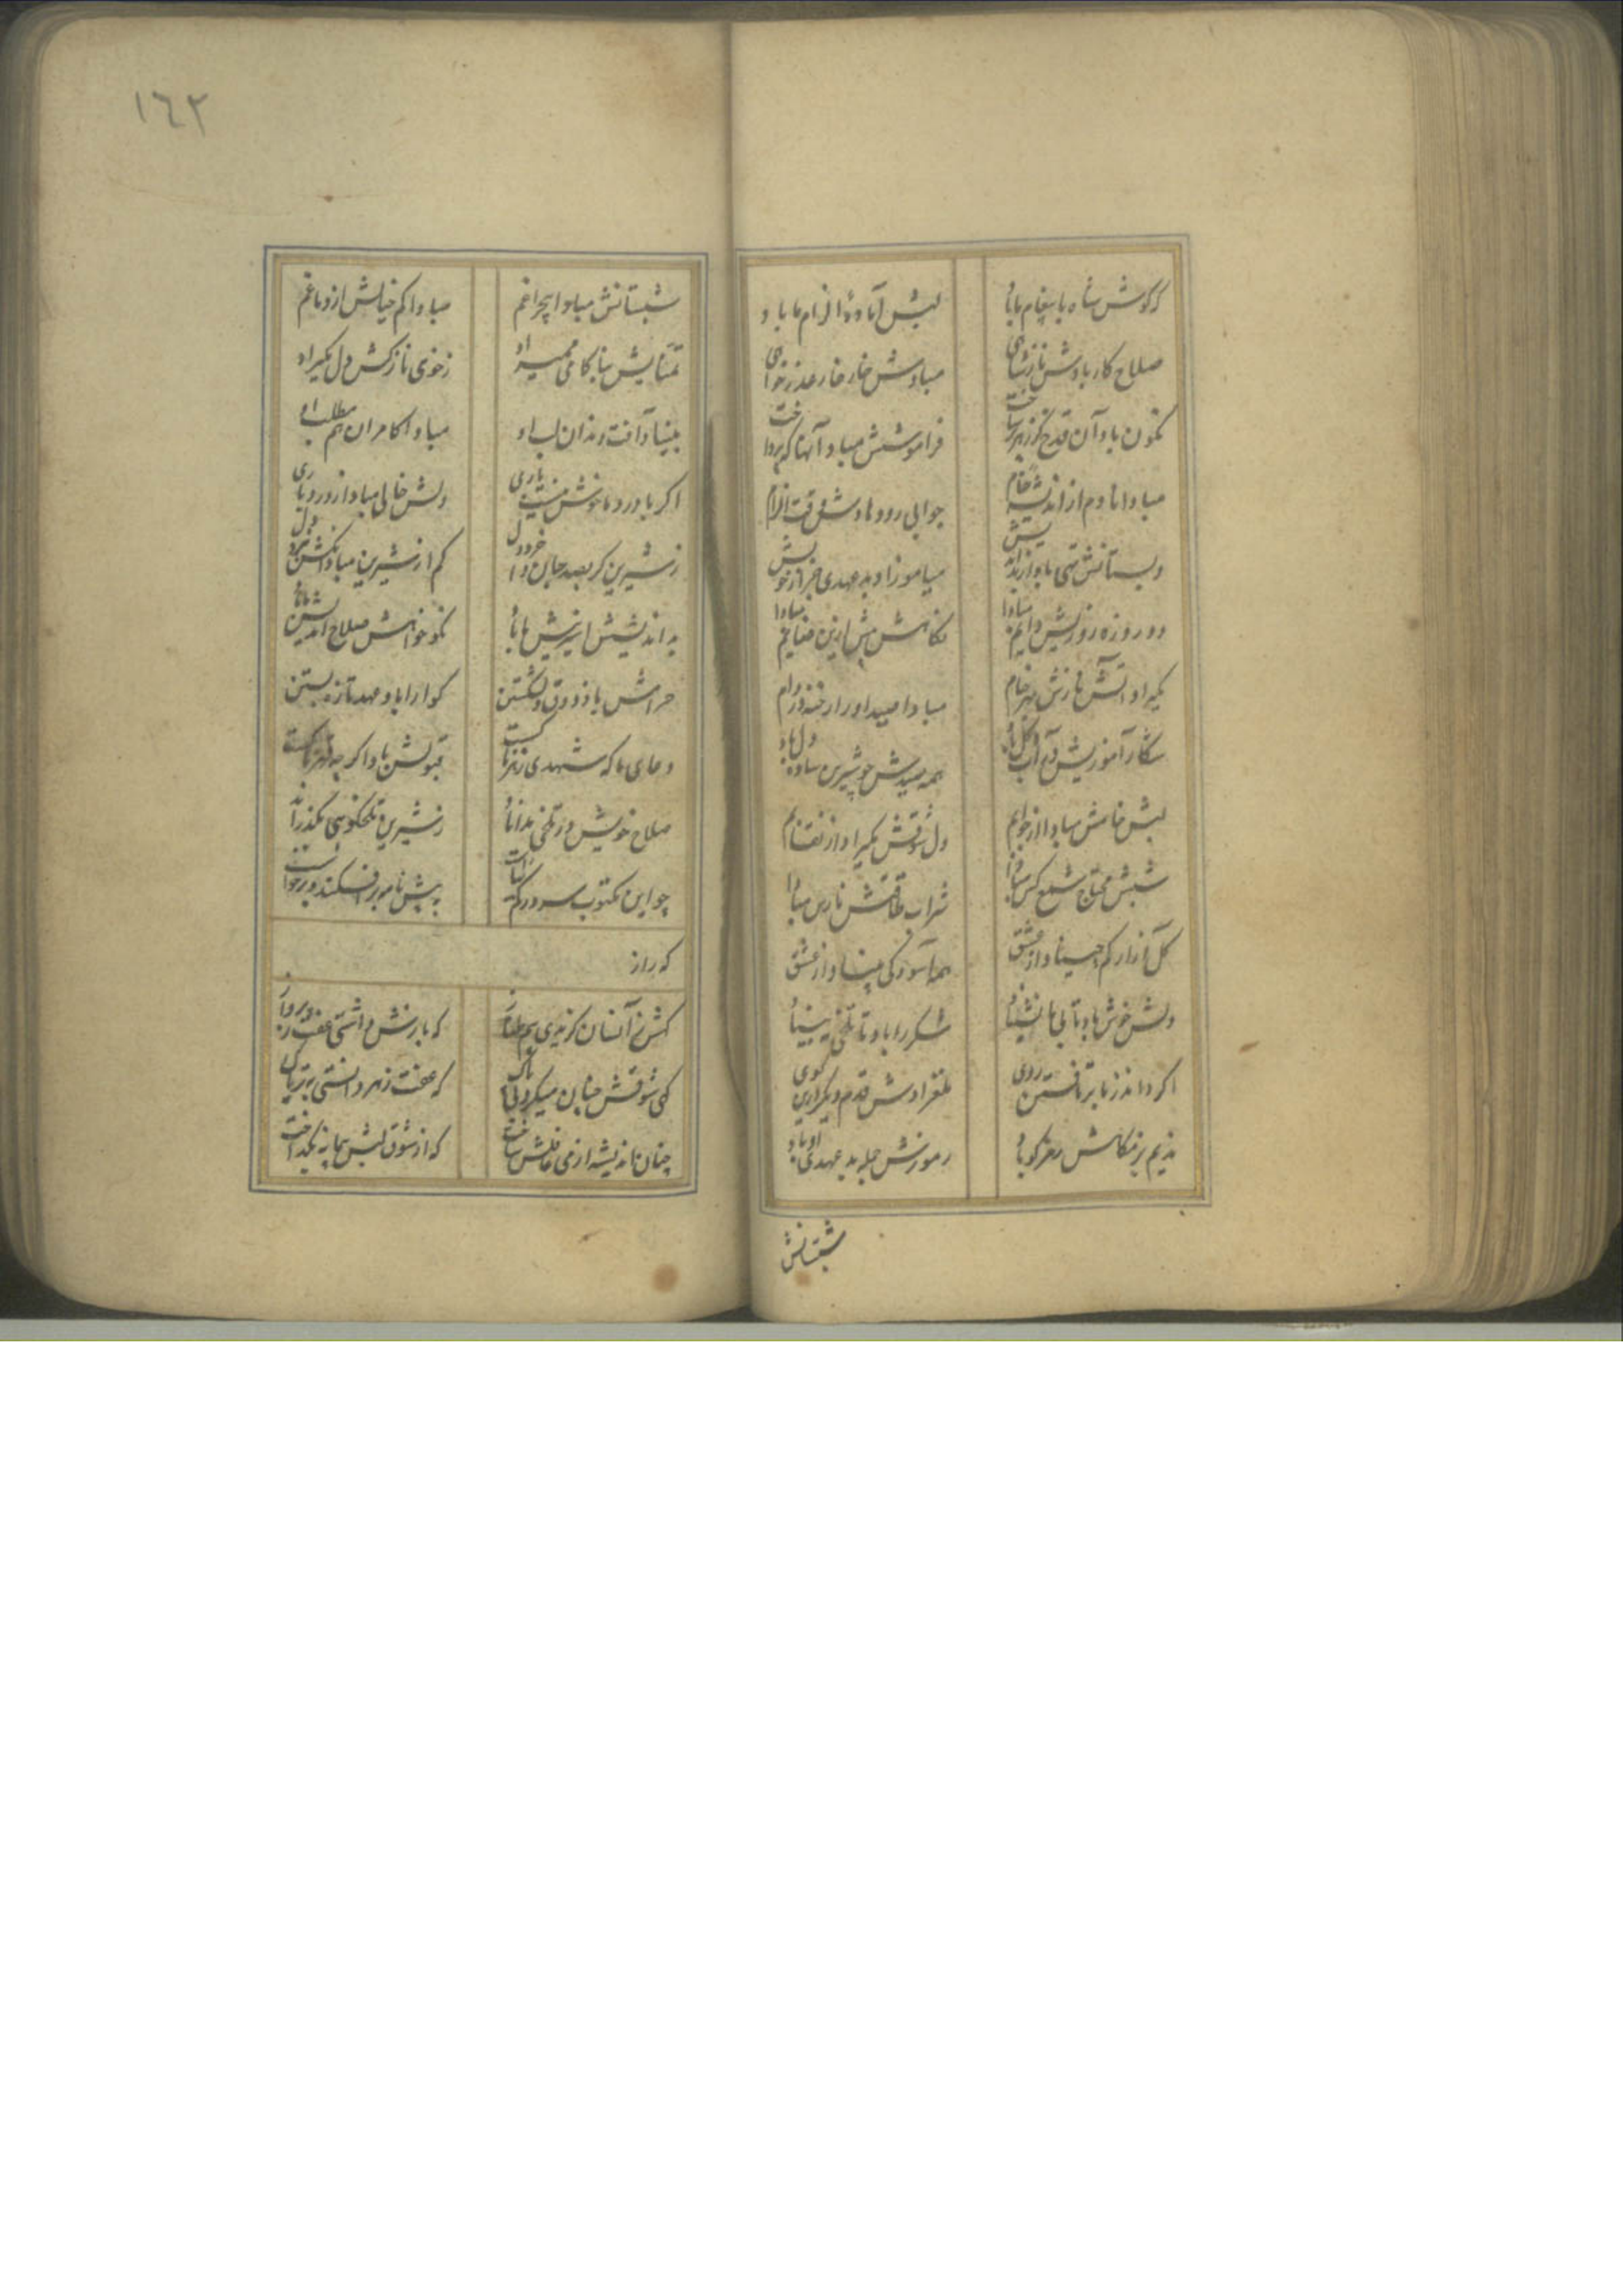 که گوش شاه با پیغام ما باد
لبش آماده الزام ما باد
صلاح کار بادش ناز شاهی
مبادش خار خار عذرخواهی
نگون باد آن قدح کز زهر ساخت
فراموشش مباد آنها که پرداخت
مبادا نادم از اندیشه خام
جوابی رو دهادش وقت الزام
دبستانش تهی باد از بداندیش
میاموزاد بدعهدی جز از خویش
دو روزه روزیش دایم مبادا
نگاهش بیش ازین مبادا
مگیراد آتش نازش بهر خام
مبادا صید او را رخنه در دام
شکار آموزیش در آب و گل باد
همه صیدش چو شیرین ساده دل باد
لبش خامش مبادا از جوابم
دل شوقش مگیراد از نقابم
شبش محتاج شمع کس مبادا
شراب طاقتش نارس مبادا
گل آزار کم چیناد از عشق
همه آسودگی بیناد از عشق
دلش خوش باد تا بی ما نشیند
شکر را باد تا تلخی نبیند
اگر داند ز ما برتافتن روی
ملغزادش قدم دیگر ازین کوی
ندیم بزمگاهش رمزگو باد
رموزش جمله بدعهدی او باد
شبستانش
١٦٢
شبستانش مبادا بی چراغم
مبادا کم خیالش از دماغم
تمنایش بناکامی ممیراد
ز خوی نازکش دل مگیراد
مبیناد آفت دندان لب او
مبادا کامران هم مطلب او
اگر با درد ما خوش نیست باری
دلش خالی مبادا از درد یاری
ز شیرین گر بصد جان خرد دل
کم از شیرین مبادا آنکش برد دل
بد اندیشش اسیر نیش ما باد
نکو خواهش صلاح اندیش ما باد
حرامش باد ذوق دل شکستن
گوارا باد عهد تازه بستن
دعای ما که شهدی زهرناکست
قبولش باد اگر چه قهرناکست
صلاح خویش در تلخی نداند
ز شیرین تلخگوئی بگذراند
چو این مکتوب سر در گم کنان است
به پیش نامه بر افکند و برخاست
که راز
کش رخ آنسان کز نمی هم
که بازش داشتی عفت ز پرواز
گهی شوقش چنان میکرد بی باک
که عفت زهر دانستی نه تریاک
چنان اندیشه از می غافلش ساخت
که از شوق لبش پیمانه بگداخت